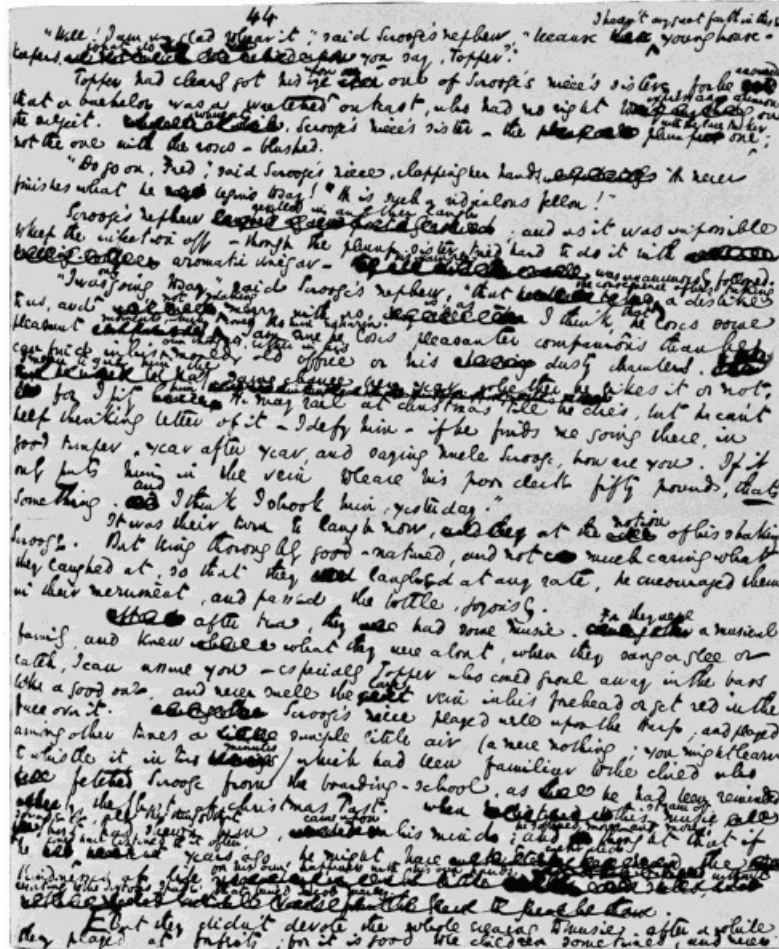 44
I hadn't any great faith in this
"Well! I am very glad to hear it," said Scrooge's nephew, "because young house-
keepers. What do you say, Topper?"
Topper had clearly got his eye upon one of Scrooge's niece's sisters, for he answered
that a bachelor was a wretched outcast, who had no right to express an opinion on
the subject. Whereat Scrooge's niece's sister - the plump one with the lace tucker;
not the one with the roses - blushed.
"Do go on, Fred," said Scrooge's niece, clapping her hands. "He never
finishes what he begins to say! He is such a ridiculous fellow!"
Scrooge's nephew revelled in another laugh, and as it was impossible
to keep the infection off - though the plump sister tried hard to do it with
aromatic vinegar - his example was unanimously followed.
"I was only going to say," said Scrooge's nephew, "that the consequence of his taking a dislike
to us, and not making merry with us, is, as I think, that he loses some
pleasant moments, which could do him no harm. I am sure he loses pleasanter companions than he
can find in his own thoughts, either in his mouldy old office or his dusty chambers.
I mean to give him the same chance every year, whether he likes it or not,
for I pity him. He may rail at Christmas till he dies, but he can't
help thinking better of it - I defy him - if he finds me going there, in
good temper, year after year, and saying Uncle Scrooge, how are you. If it
only puts him in the vein to leave his poor clerk fifty pounds, that's
something. and I think I shook him, yesterday."
It was their turn to laugh now, at the notion of his shaking
Scrooge. But being thoroughly good-natured, and not much caring what
they laughed at, so that they laughed at any rate, he encouraged them
in their merriment, and passed the bottle, joyously.
after tea, they had some music. For they were a musical
family, and knew what they were about, when they sung a glee or
catch, I can assure you - especially Topper who could growl away in the bass
like a good one, and never swell the large veins in his forehead or get red in the
face over it. Scrooge's niece played well upon the Harp; and played
among other tunes a simple little air (a mere nothing: you might learn
to whistle it in two minutes) which had been familiar to the child who
fetched Scrooge from the boarding-school, as he had been reminded
by the Ghost of Christmas Past. When this strain of music
sounded, all the things that Ghost had shewn him came upon his mind; he softened more and more; and thought that if
he could have listened to it often years ago, he might have cultivated the
kindnesses of life for his own happiness with his own hands, without
resorting to the sexton's spade that buried Jacob Marley.
But they didn't devote the whole evening to music. After a while
they played at forfeits; for it is good to be children sometimes, and never